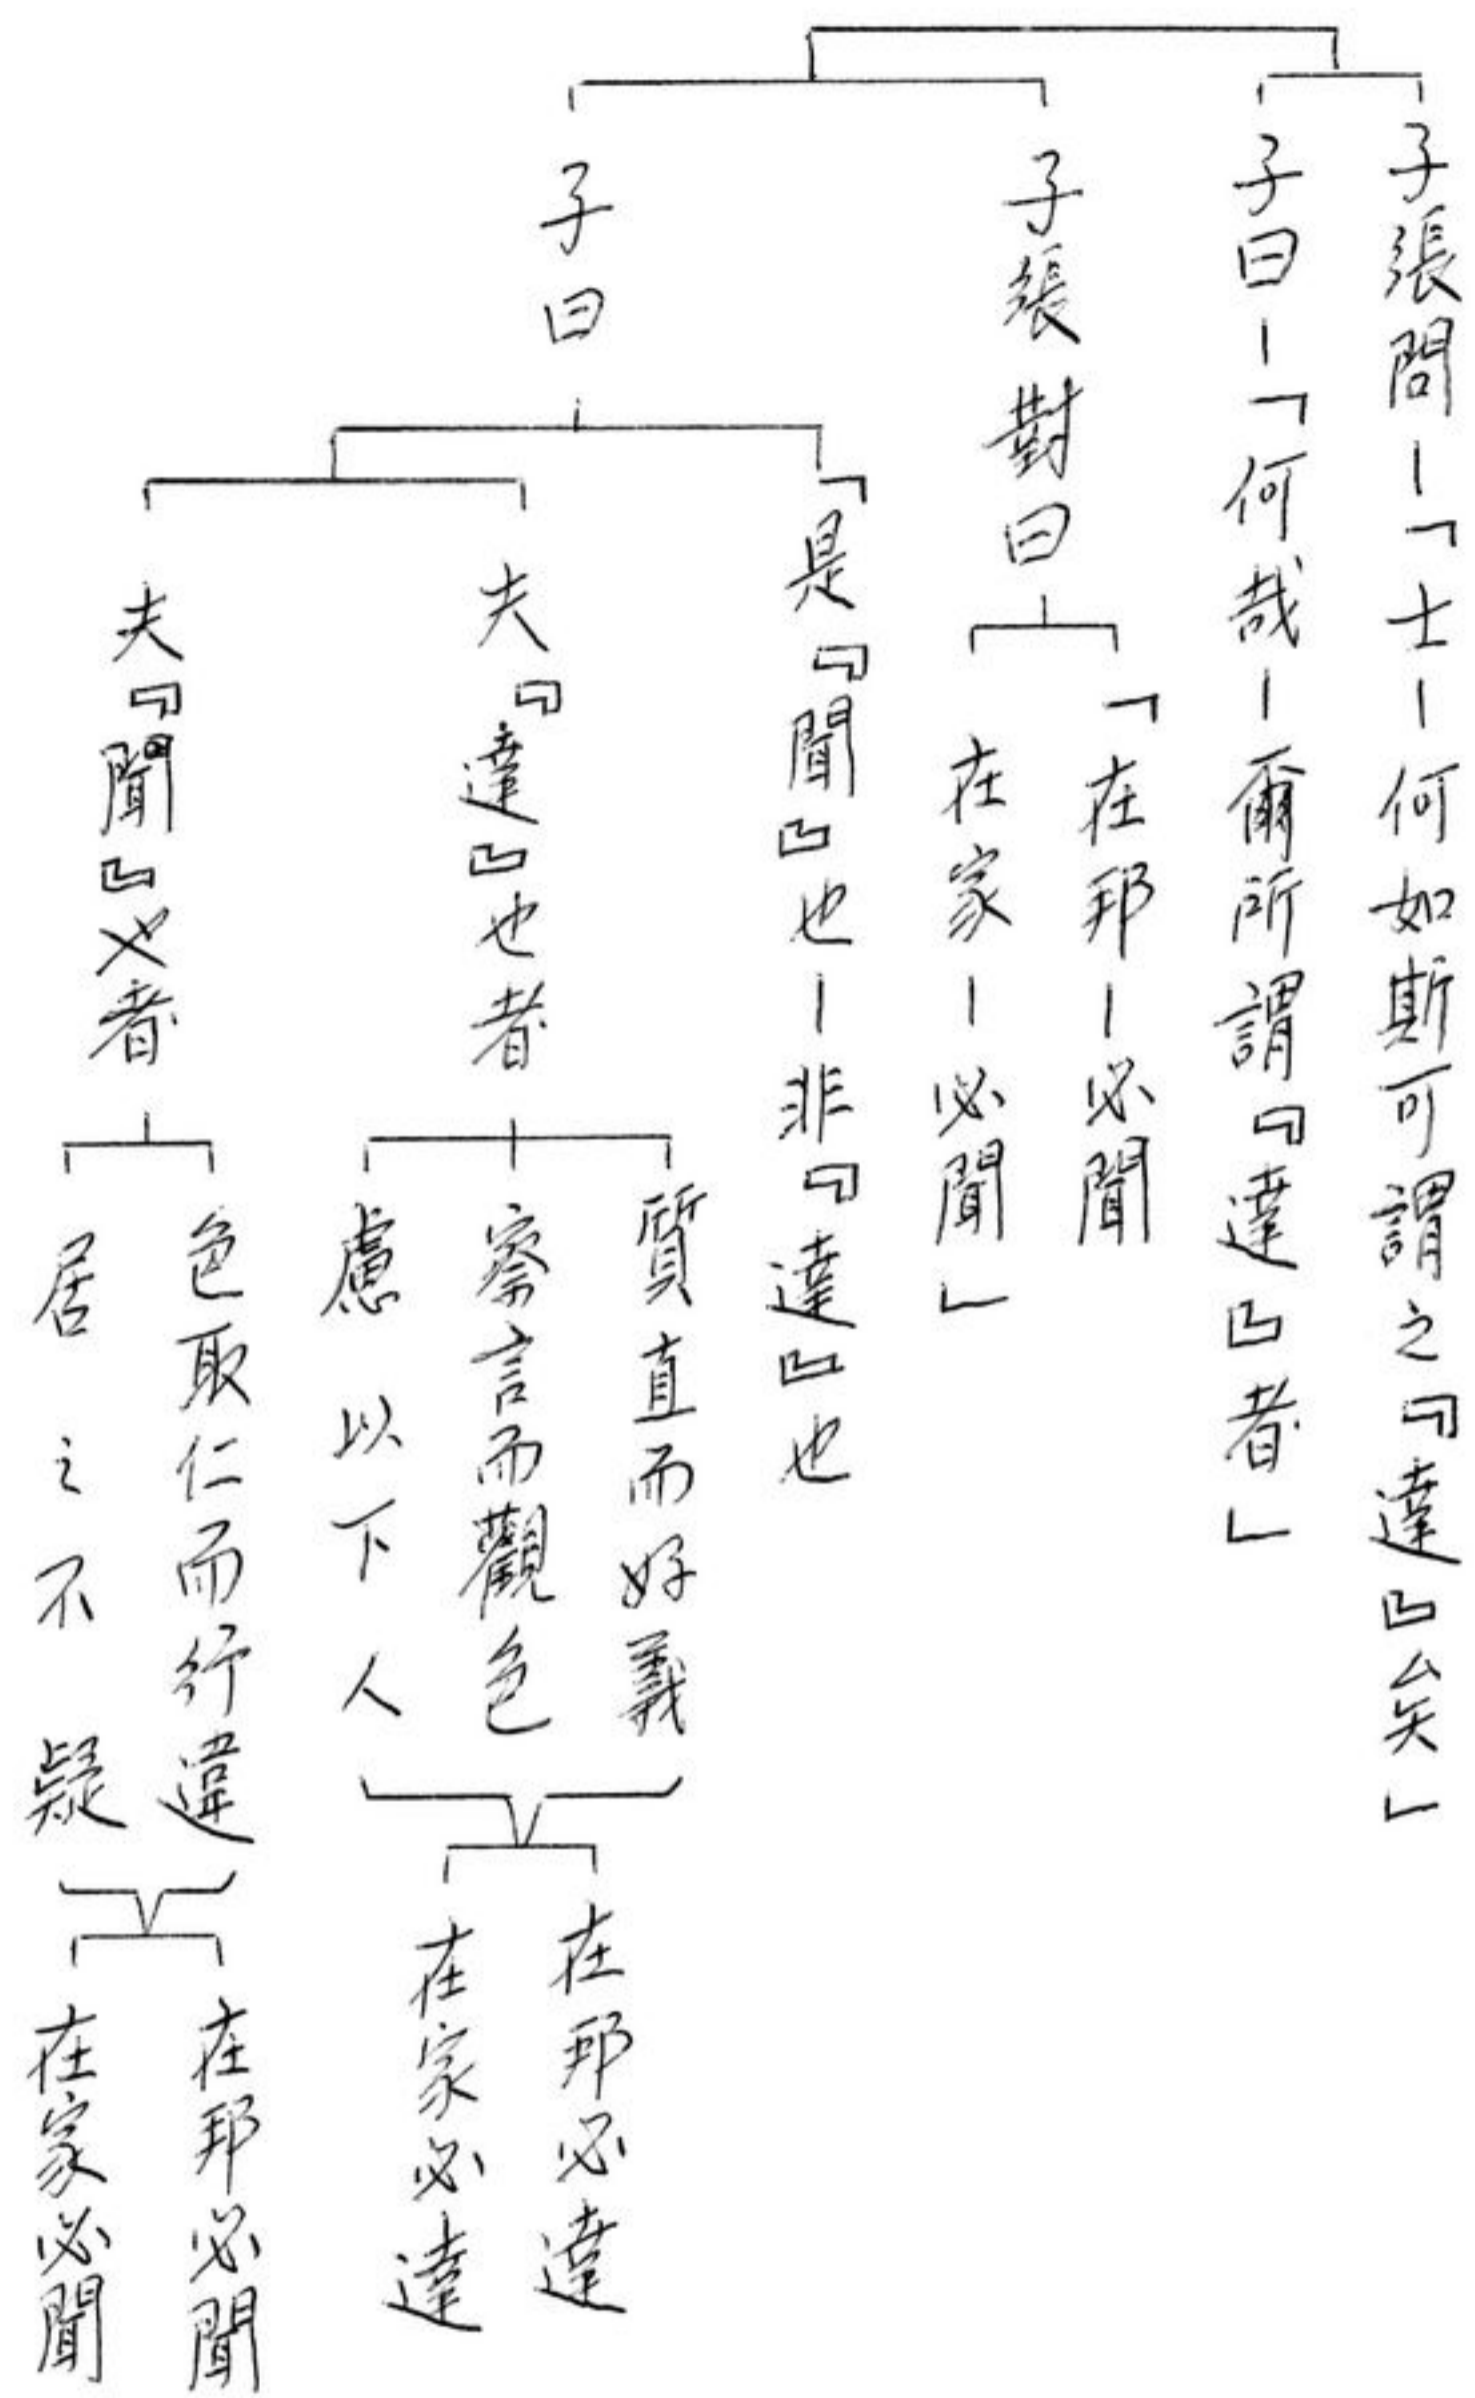 子張問－「士－何如斯可謂之『達』矣」
子曰－「何哉－爾所謂『達』者」
子張對曰
「在邦－必聞
在家－必聞」
子曰
「是『聞』也－非『達』也
夫『達』也者
質直而好義
察言而觀色
慮以下人
在邦必達
在家必達
夫『聞』也者
色取仁而行違
居之不疑
在邦必聞
在家必聞